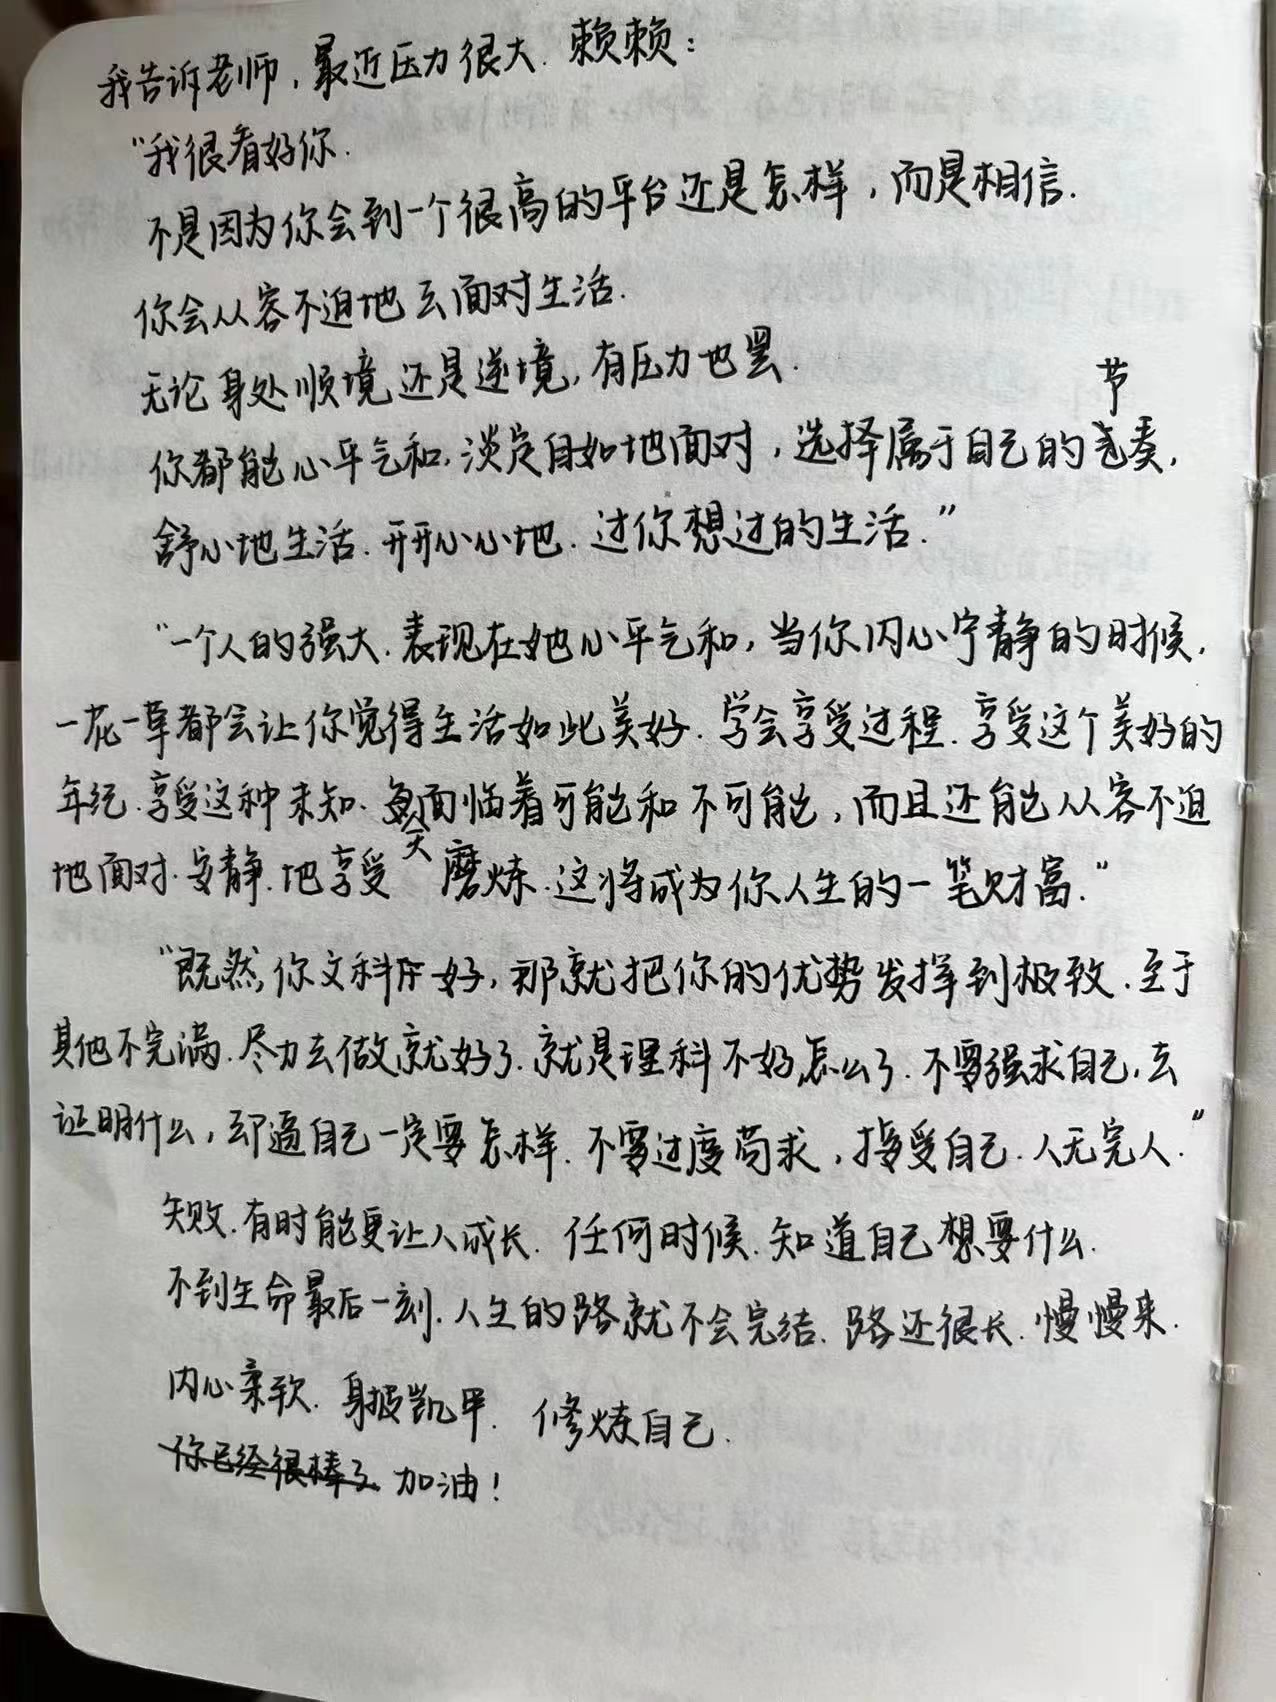 我告诉老师，最近压力很大. 赖赖：
“我很看好你.
不是因为你会到一个很高的平台还是怎样，而是相信.
你会从容不迫地去面对生活.
无论身处顺境还是逆境，有压力也罢.
你都能心平气和，淡定自如地面对，选择属于自己的节奏，
舒心地生活. 开开心心地. 过你想过的生活.”
“一个人的强大. 表现在她心平气和，当你内心宁静的时候，
一花一草都会让你觉得生活如此美好. 学会享受过程. 享受这个美好的
年纪. 享受这种未知. 每天面临着可能和不可能，而且还能从容不迫
地面对. 安静. 地享受磨炼. 这将成为你人生的一笔财富.”
“既然，你文科好，那就把你的优势发挥到极致. 至于
其他不完满. 尽力去做就好了. 就是理科不好，怎么了. 不要强求自己，去
证明什么，却逼自己一定要怎样. 不要过度苟求，接受自己. 人无完人.”
失败. 有时能更让人成长. 任何时候. 知道自己想要什么.
不到生命最后一刻. 人生的路就不会完结. 路还很长. 慢慢来.
内心柔软. 身披凯甲. 修炼自己.
你已经很棒了 加油！